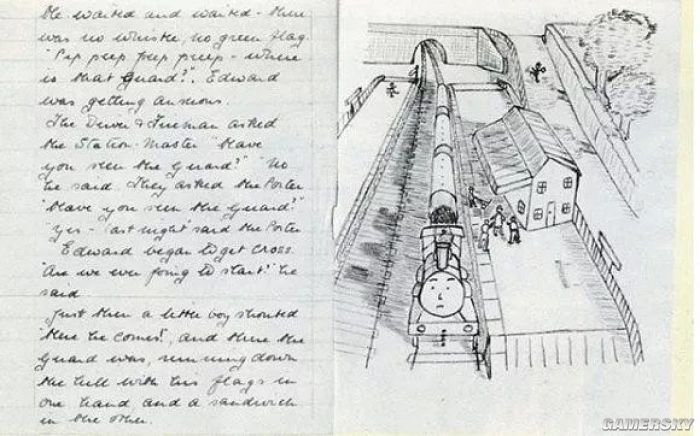 He waited and waited - there
was no whistle, no green flag.
"Peep peep peep peep - where
is that guard?". Edward
was getting anxious.
The Driver & Fireman asked
the Station-Master "Have
you seen the guard?" "No
he said. They asked the Porter
"Have you seen the guard?"
"Yes - last night" said the Porter
Edward began to get cross.
"Are we ever going to start?" he
said.
Just then a little boy shouted
"Here he comes!", and there the
guard was, running down
the hill with his flags in
one hand and a sandwich
in the other.
GAMERSKY